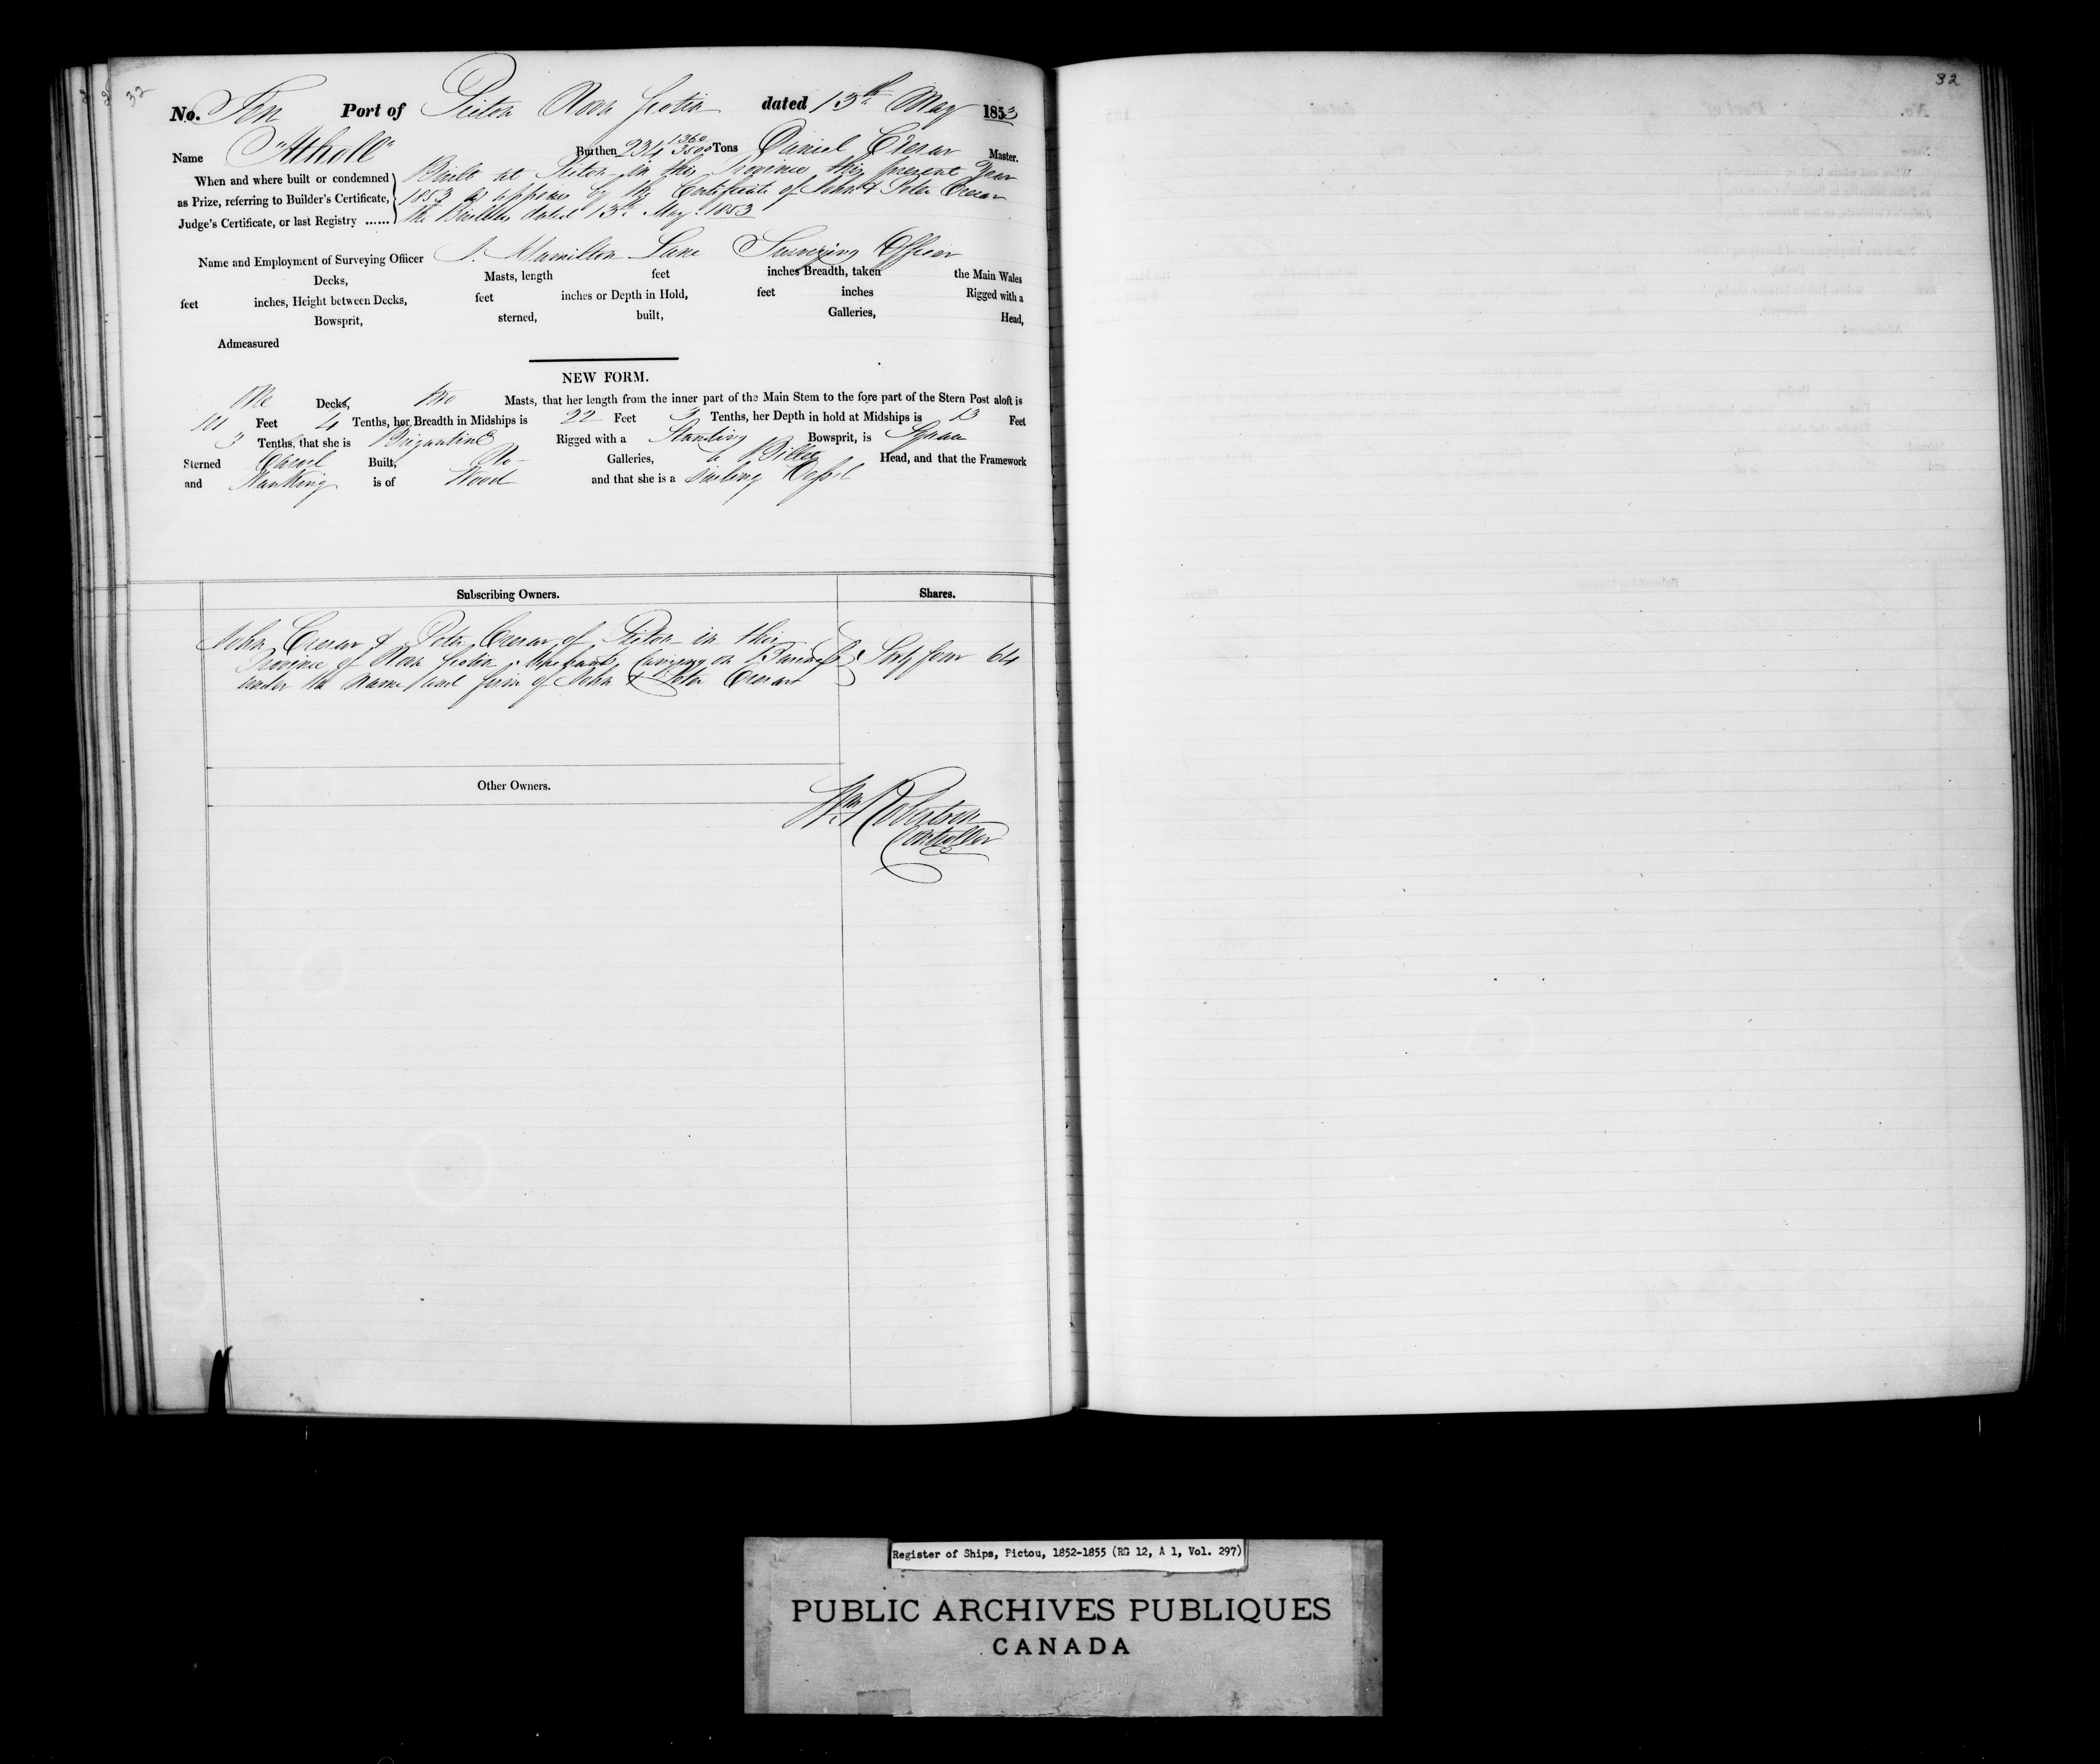 32
No. Ten Port of Pictou Nova Scotia dated 13th May 1853
Name "Atholl" Burthen 234 1360/3500 Tons Daniel Crerar Master.
When and where built or condemned Built at Pictou in this Province this present Year
as Prize, referring to Builder's Certificate, 1853 as appears by the Certificate of John & Peter Crerar
Judge's Certificate, or last Registry ...... the Builders dated 13th May 1853
Name and Employment of Surveying Officer J. Hamilton Lane Surveying Officer
Decks, Masts, length feet inches Breadth, taken the Main Wales
feet inches, Height between Decks, feet inches or Depth in Hold, feet inches Rigged with a
Bowsprit, sterned, built, Galleries, Head,
Admeasured
NEW FORM.
One Decks, Two Masts, that her length from the inner part of the Main Stem to the fore part of the Stern Post aloft is
101 Feet 4 Tenths, her Breadth in Midships is 22 Feet 3 Tenths, her Depth in hold at Midships is 13 Feet
3 Tenths, that she is Brigantine Rigged with a Standing Bowsprit, is Square
Sterned Carvel Built, No Galleries, a Billet Head, and that the Framework
and Planking is of Wood and that she is a Sailing Vessel
Subscribing Owners. Shares.
John Crerar & Peter Crerar of Pictou in this
Province of Nova Scotia Merchants Carrying on Business Sixty four 64
under the name and firm of John & Peter Crerar
Other Owners.
Wm Robertson
Controller
32
Register of Ships, Pictou, 1852-1855 (RG 12, A 1, Vol. 297)
PUBLIC ARCHIVES PUBLIQUES
CANADA